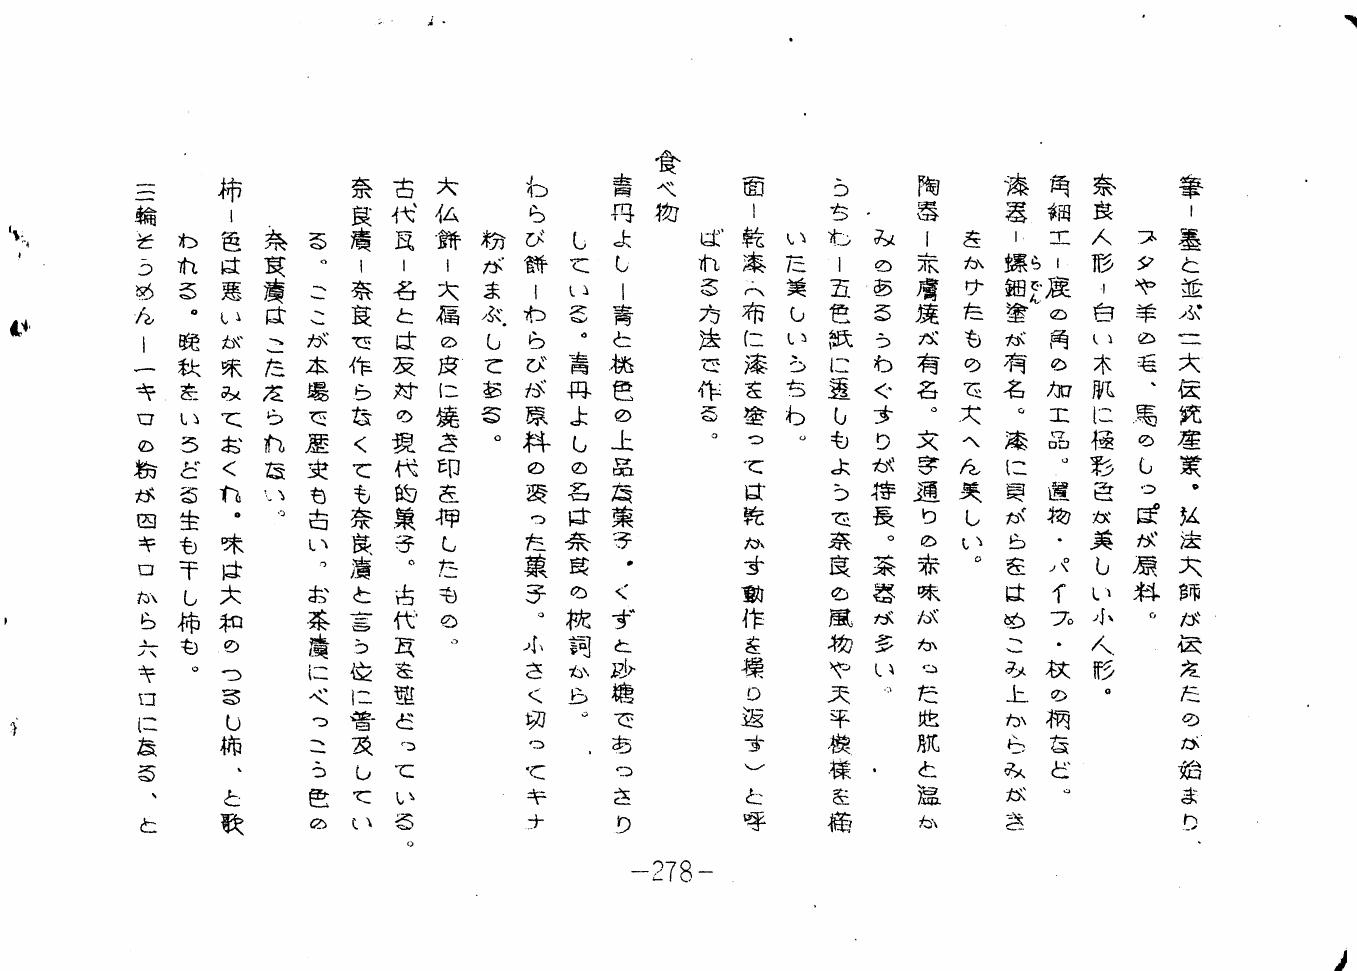 筆ー墨と並ぶ二大伝統産業。弘法大師が伝えたのが始まり、
ブタや羊の毛、馬のしっぽが原料。
奈良人形ー白い木肌に極彩色が美しい小人形。
角細工ー鹿の角の加工品。置物・パイプ・杖の柄など。
漆器ー螺鈿塗が有名。漆に貝がらをはめこみ上からみがき
らでん
をかけたもので大へん美しい。
陶器ー赤膚焼が有名。文字通りの赤味がかった地肌と温か
みのあるうわぐすりが特長。茶器が多い。
うちわー五色紙に透しもようで奈良の風物や天平模様を描
いた美しいうちわ。
面ー乾漆(布に漆を塗っては乾かす動作を操り返す)と呼
ばれる方法で作る。
食べ物
青丹よしー青と桃色の上品な菓子・くずと砂糖であっさり
している。青丹よしの名は奈良の枕詞から。
わらび餅ーわらびが原料の変った菓子。小さく切ってキナ
粉がまぶしてある。
大仏餅ー大福の皮に焼き印を押したもの。
古代瓦ー名とは反対の現代的菓子。古代瓦を型どっている。
奈良漬ー奈良で作らなくても奈良漬と言う位に普及してい
る。ここが本場で歴史も古い。お茶漬にべっこう色の
奈良漬はこたえられない。
柿ー色は悪いが味みておくれ。味は大和のつるし柿、と歌
われる。晩秋をいろどる生も干し柿も。
三輪そうめんー一キロの粉が四キロから六キロになる、と
—278—